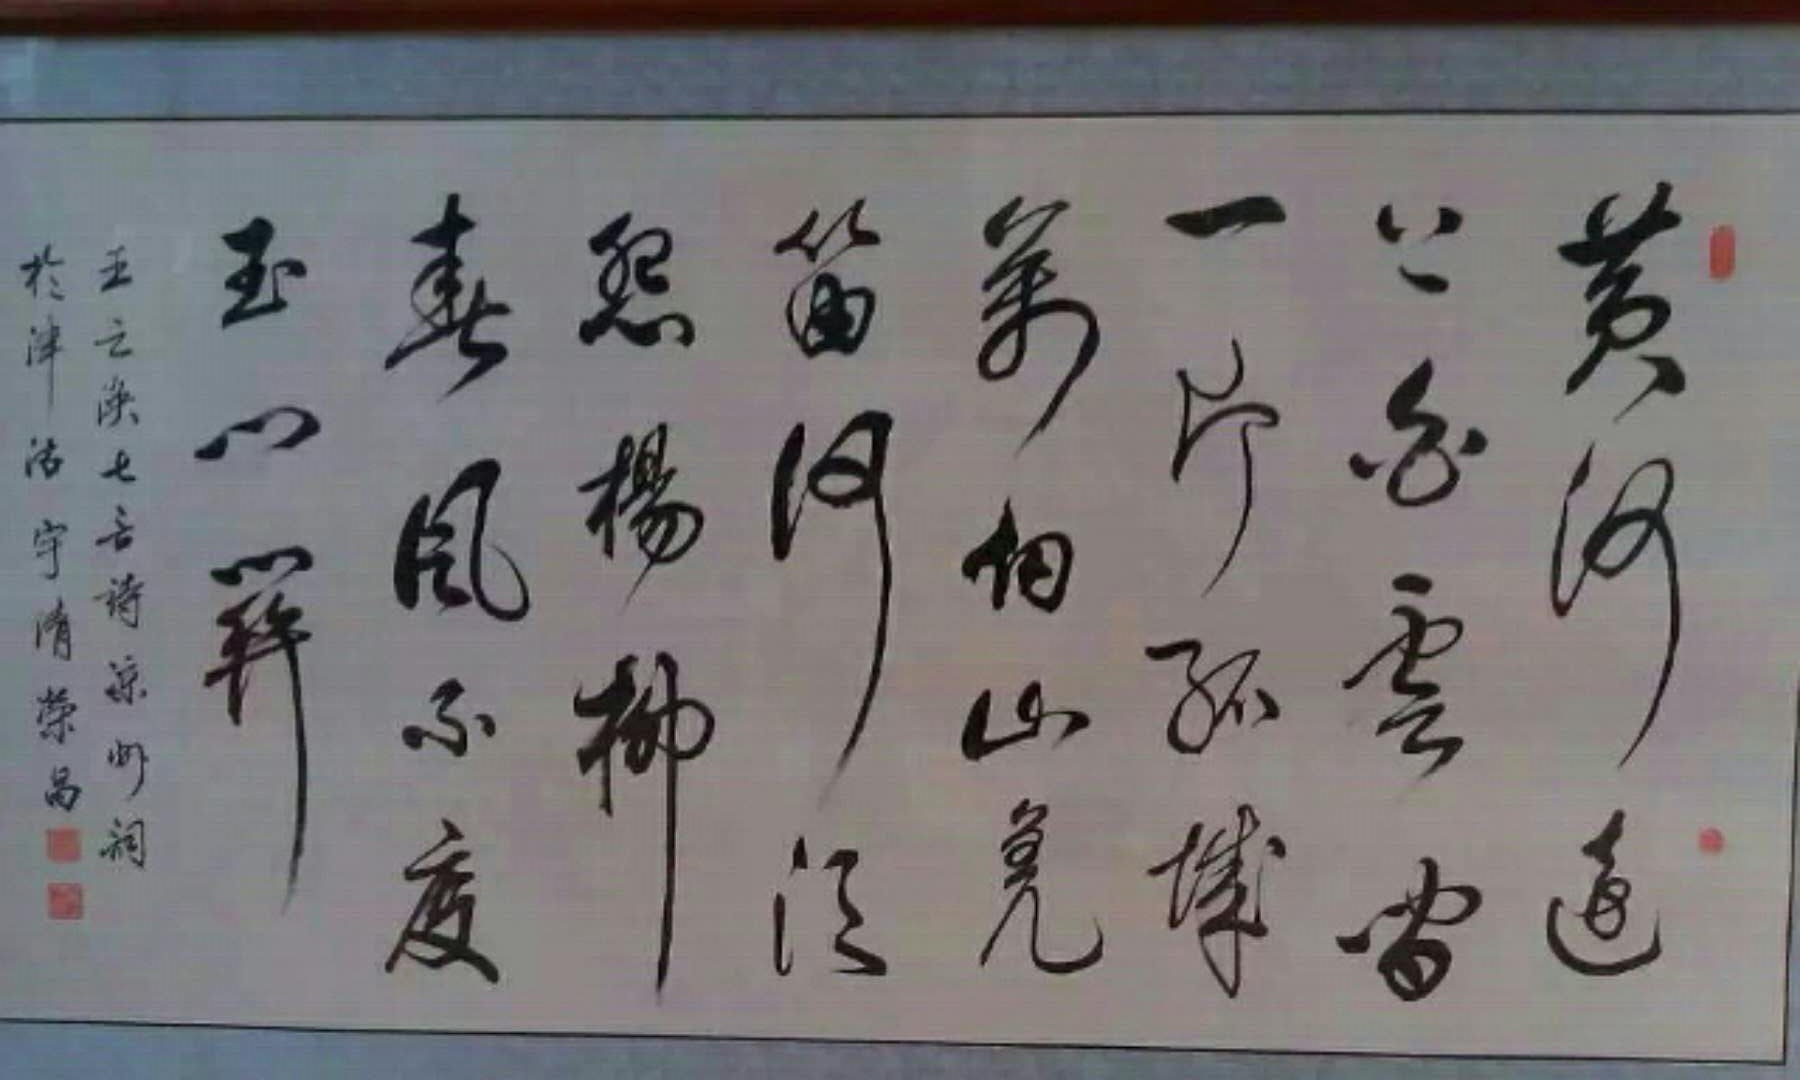 黄河遠
上白雲間
一片孤城
萬仞山羌
笛何須
怨楊柳
春風不度
玉門關
王之渙七言诗涼州詞
於津沽宇清榮昌